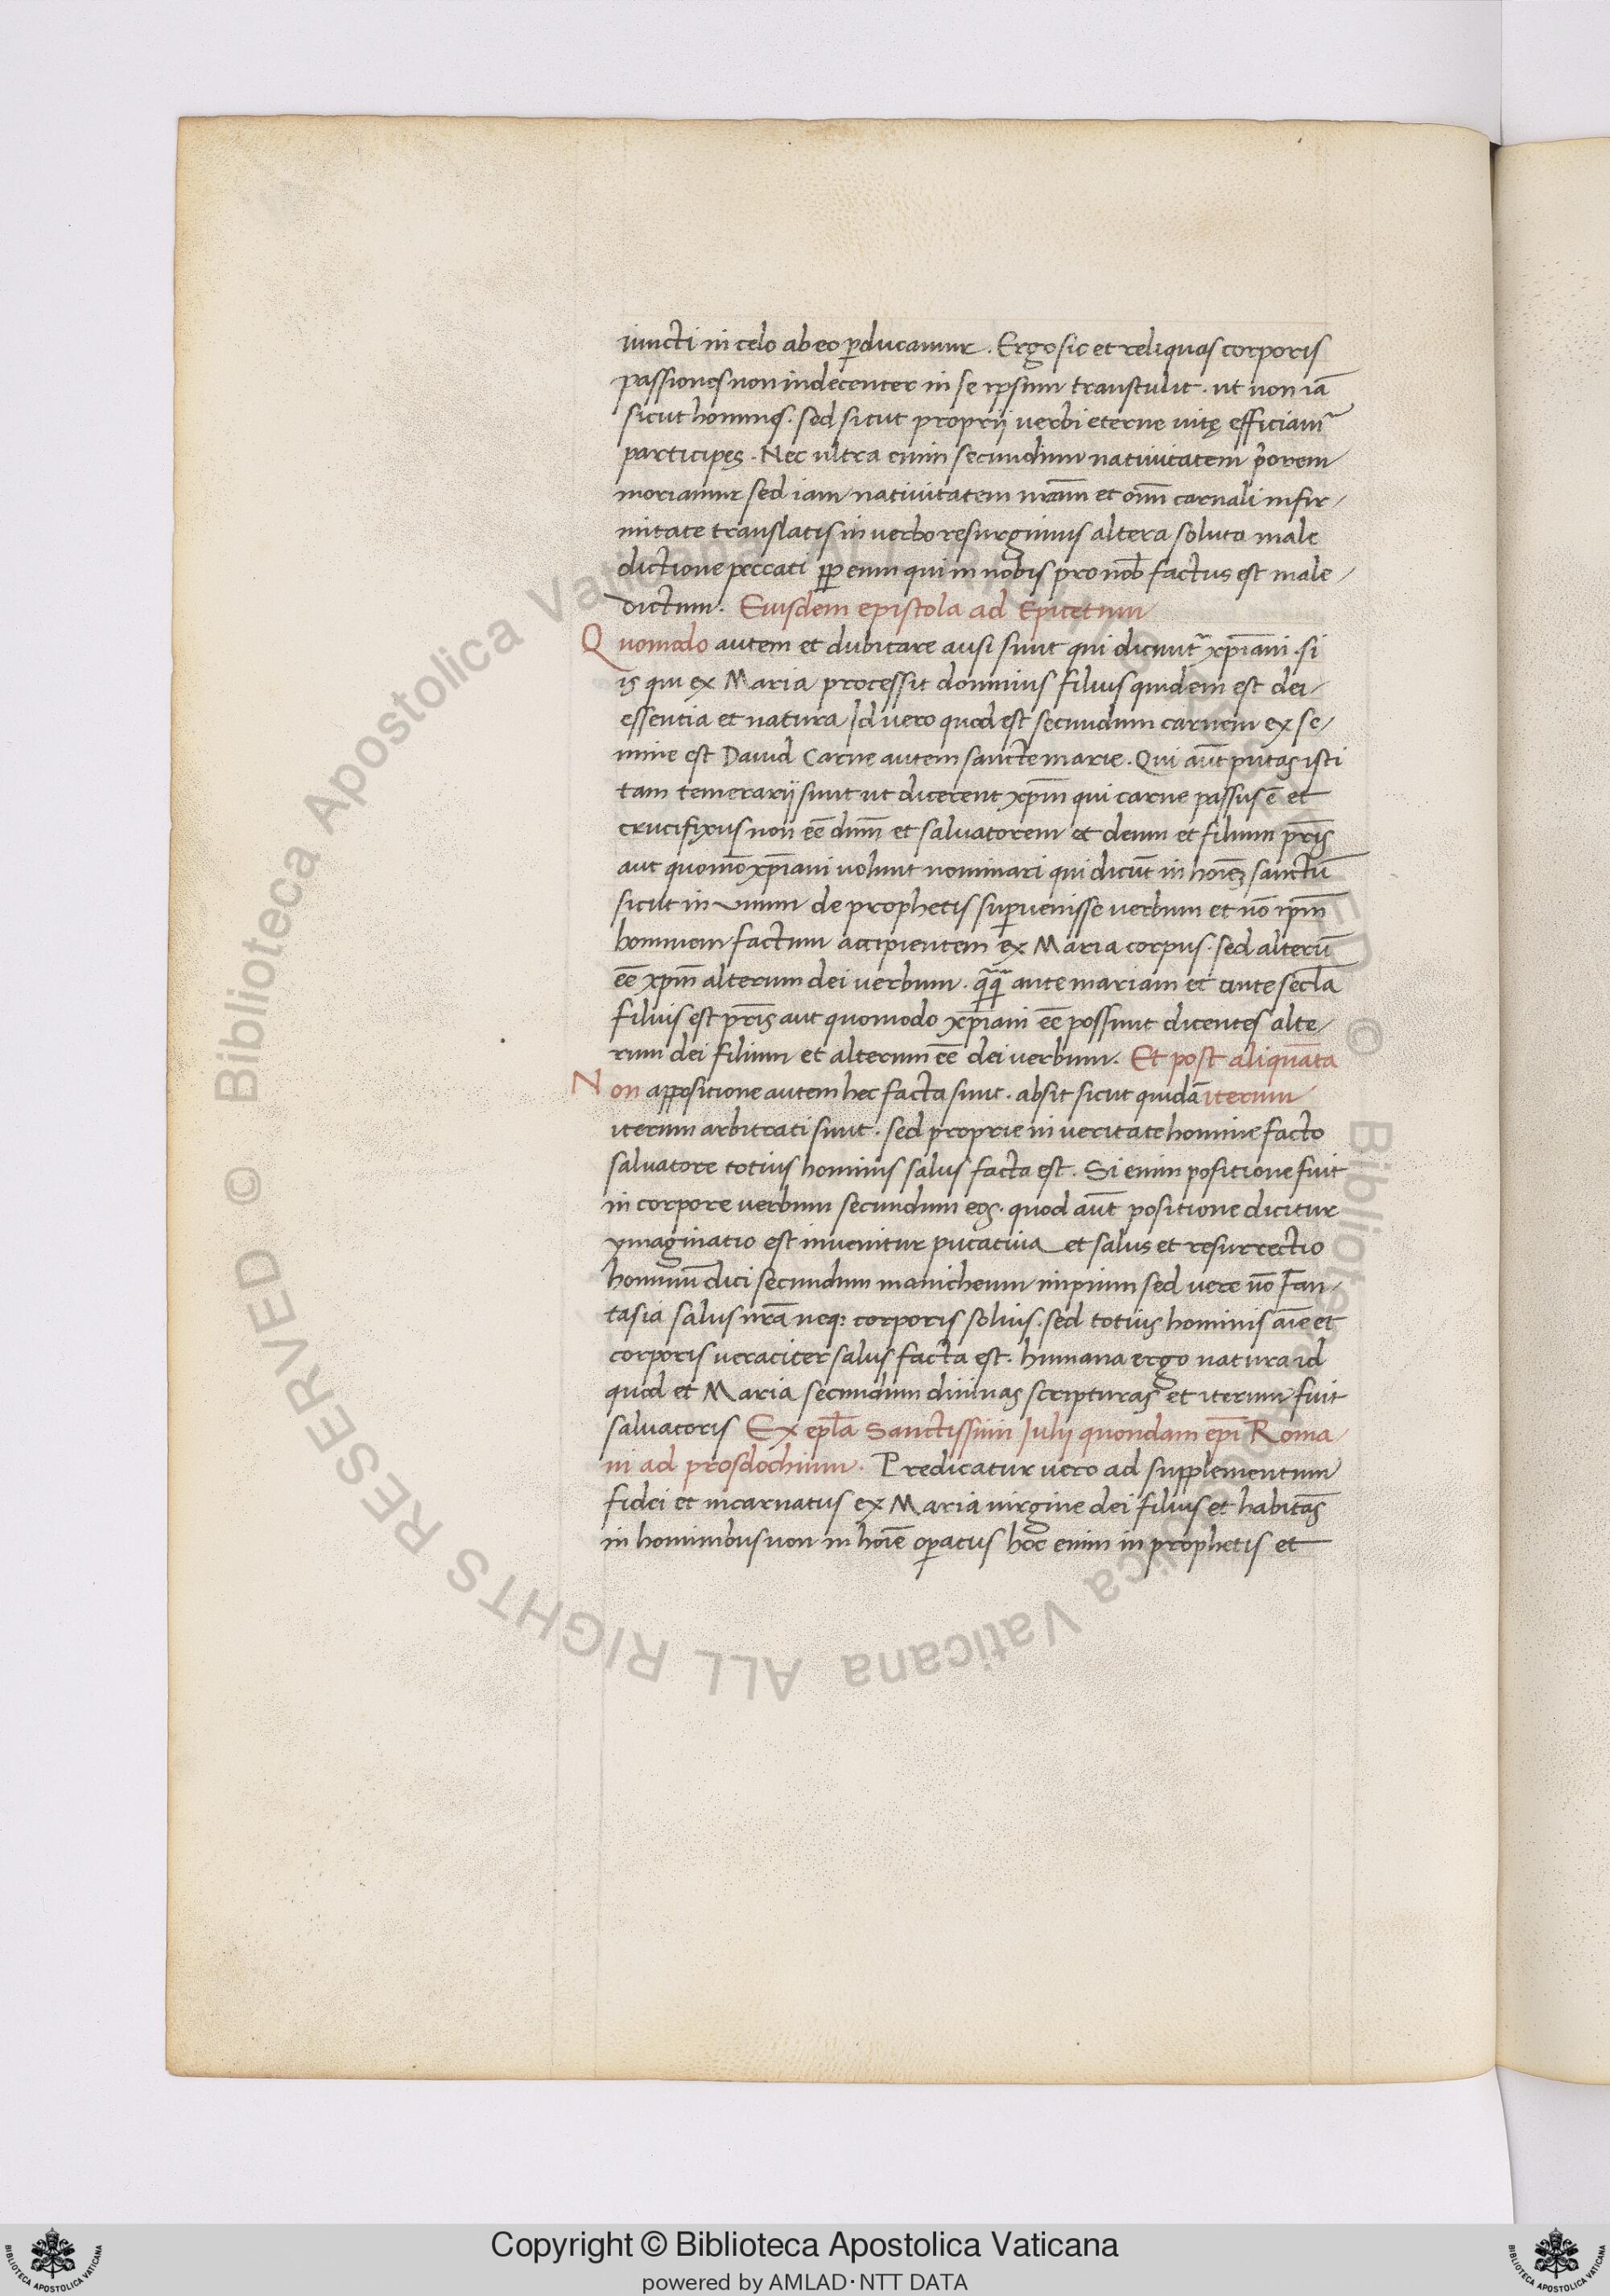 iuncti in celo ab eo ꝑducamur. Ergo sic et reliquas corporis
passiones non indecenter in se ipsum transtulit. ut non iā
sicut homines. sed sicut proprij verbi eterne uitę efficiamʳ
participes. Nec ultra enim secundum natiuitatem p̄orem
moriamur sed iam natiuitatem nr̄am et om̄ carnali infir/
mitate translatis in verbo resurgimus altera soluta male
dictione peccati ꝓp eum qui in nobis pro nob̄ factus est male/
dictum. Eiusdem epistola ad Epicetum
Quomodo autem et dubitare ausi sunt qui dicuntʳ xp̄iani. si
is qui ex Maria processit dominus filius quidem est dei/
essentia et natura Id vero quod est secundum carnem ex se/
mine est Dauid Carne autem sancte marie. Qui aūt putas isti
tam temerarij sunt ut dicerent xp̄m qui carne passus ē et
crucifixus non eē dnm̄ et saluatorem et deum et filium pr̄is
aut quomō xp̄iani volunt nominari qui dicūt in hoīeꝫ sanctū
sicut in vnum de prophetis suꝑuenisse verbum et nō ip̄m
hominem factum accipientem ex Maria corpus. sed alterū
eē xp̄m alterum dei uerbum. qͣqͣ ante mariam et ante secl̄a
filius est pr̄is aut quomodo xp̄iani eē possunt dicentes alte/
rum dei filium et alterum eē dei uerbum. Et post aliquāta
Non appositione autem hec facta sunt. absit sicut quidā iterum
iterum arbitrati sunt. sed proprie in ueritate homine facto
saluatore totius hominis salus facta est. Si enim positione fuit
in corpore uerbum secundum eos. quod aūt positione dicitur
ymaginatio est inuenitur putatiua et salus et resurrectio
hominū dici secundum manicheum impium sed uere nō Fan/
tasia salus nr̄a neq: corporis solius. sed totius hominis aīe et
corporis ueraciter salus facta est. humana ergo natura id
quod et Maria secundum diuinas scripturas et iterum fuit
saluatoris Ex epl̄a Sanctissimi Iulij quondam ep̄i Roma/
ni ad prosdochium. Predicatur uero ad supplementum
fidei et incarnatus ex Maria uirgine dei filius et habitās
in hominibus non in hoīe oꝑatus hoc enim in prophetis et
© Biblioteca Apostolica Vaticana ALL RIGHTS RESERVED © Biblioteca Apostolica Vaticana ALL RIGHTS RESERVED
Copyright © Biblioteca Apostolica Vaticana
powered by AMLAD·NTT DATA
BIBLIOTECA APOSTOLICA VATICANA
BIBLIOTECA APOSTOLICA VATICANA